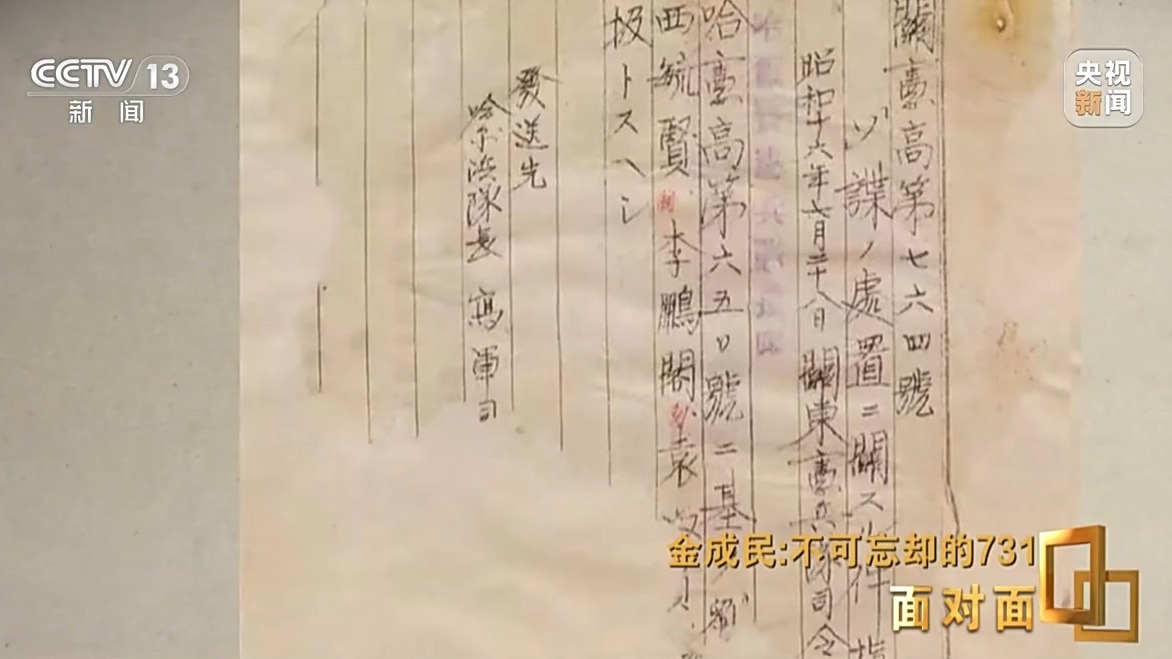 CCTV 13
新闻
央视
新闻
關憲高第七六四號
ソ諜ノ處置ニ關スル件指
昭和十六年六月二十八日 關東憲兵隊司令
哈憲高第六五〇號ニ基
西毓賢 李鵬閣 袁
扱トスヘシ
發送先
哈尔濱隊長 寫 軍司
金成民:不可忘却的731
面对面